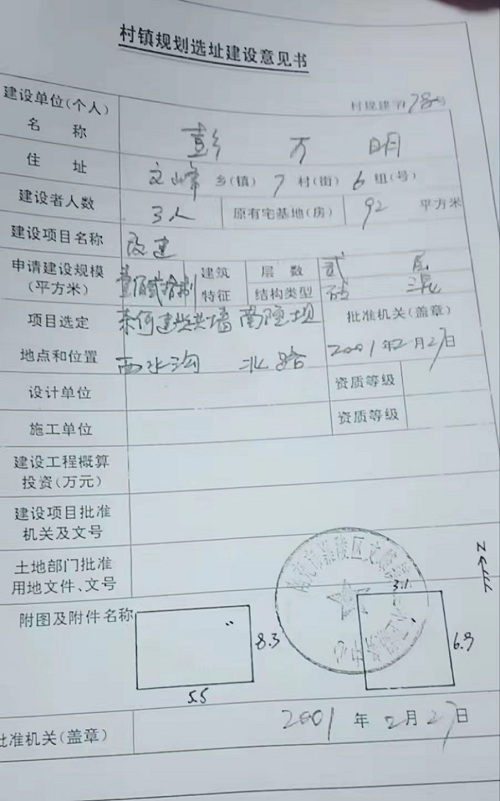 村镇规划选址建设意见书
村规建字 78号
建设单位(个人)
名 称
彭 万 明
住 址 文峰 乡(镇) 7 村(街) 6 组(号)
建设者人数 3人 原有宅基地(房) 92 平方米
建设项目名称 改建
申请建设规模
(平方米)
建筑
特征
层 数 贰 层
结构类型 砖 混
项目选定
地点和位置
东何建兴共墙 南 坝
西水沟 北路
批准机关(盖章)
2001年2月27日
设计单位 资质等级
施工单位 资质等级
建设工程概算
投资(万元)
建设项目批准
机关及文号
土地部门批准
用地文件、文号
附图及附件名称
N
8.3
5.5
3.1
6.9
批准机关(盖章)
2001 年 2月 27日